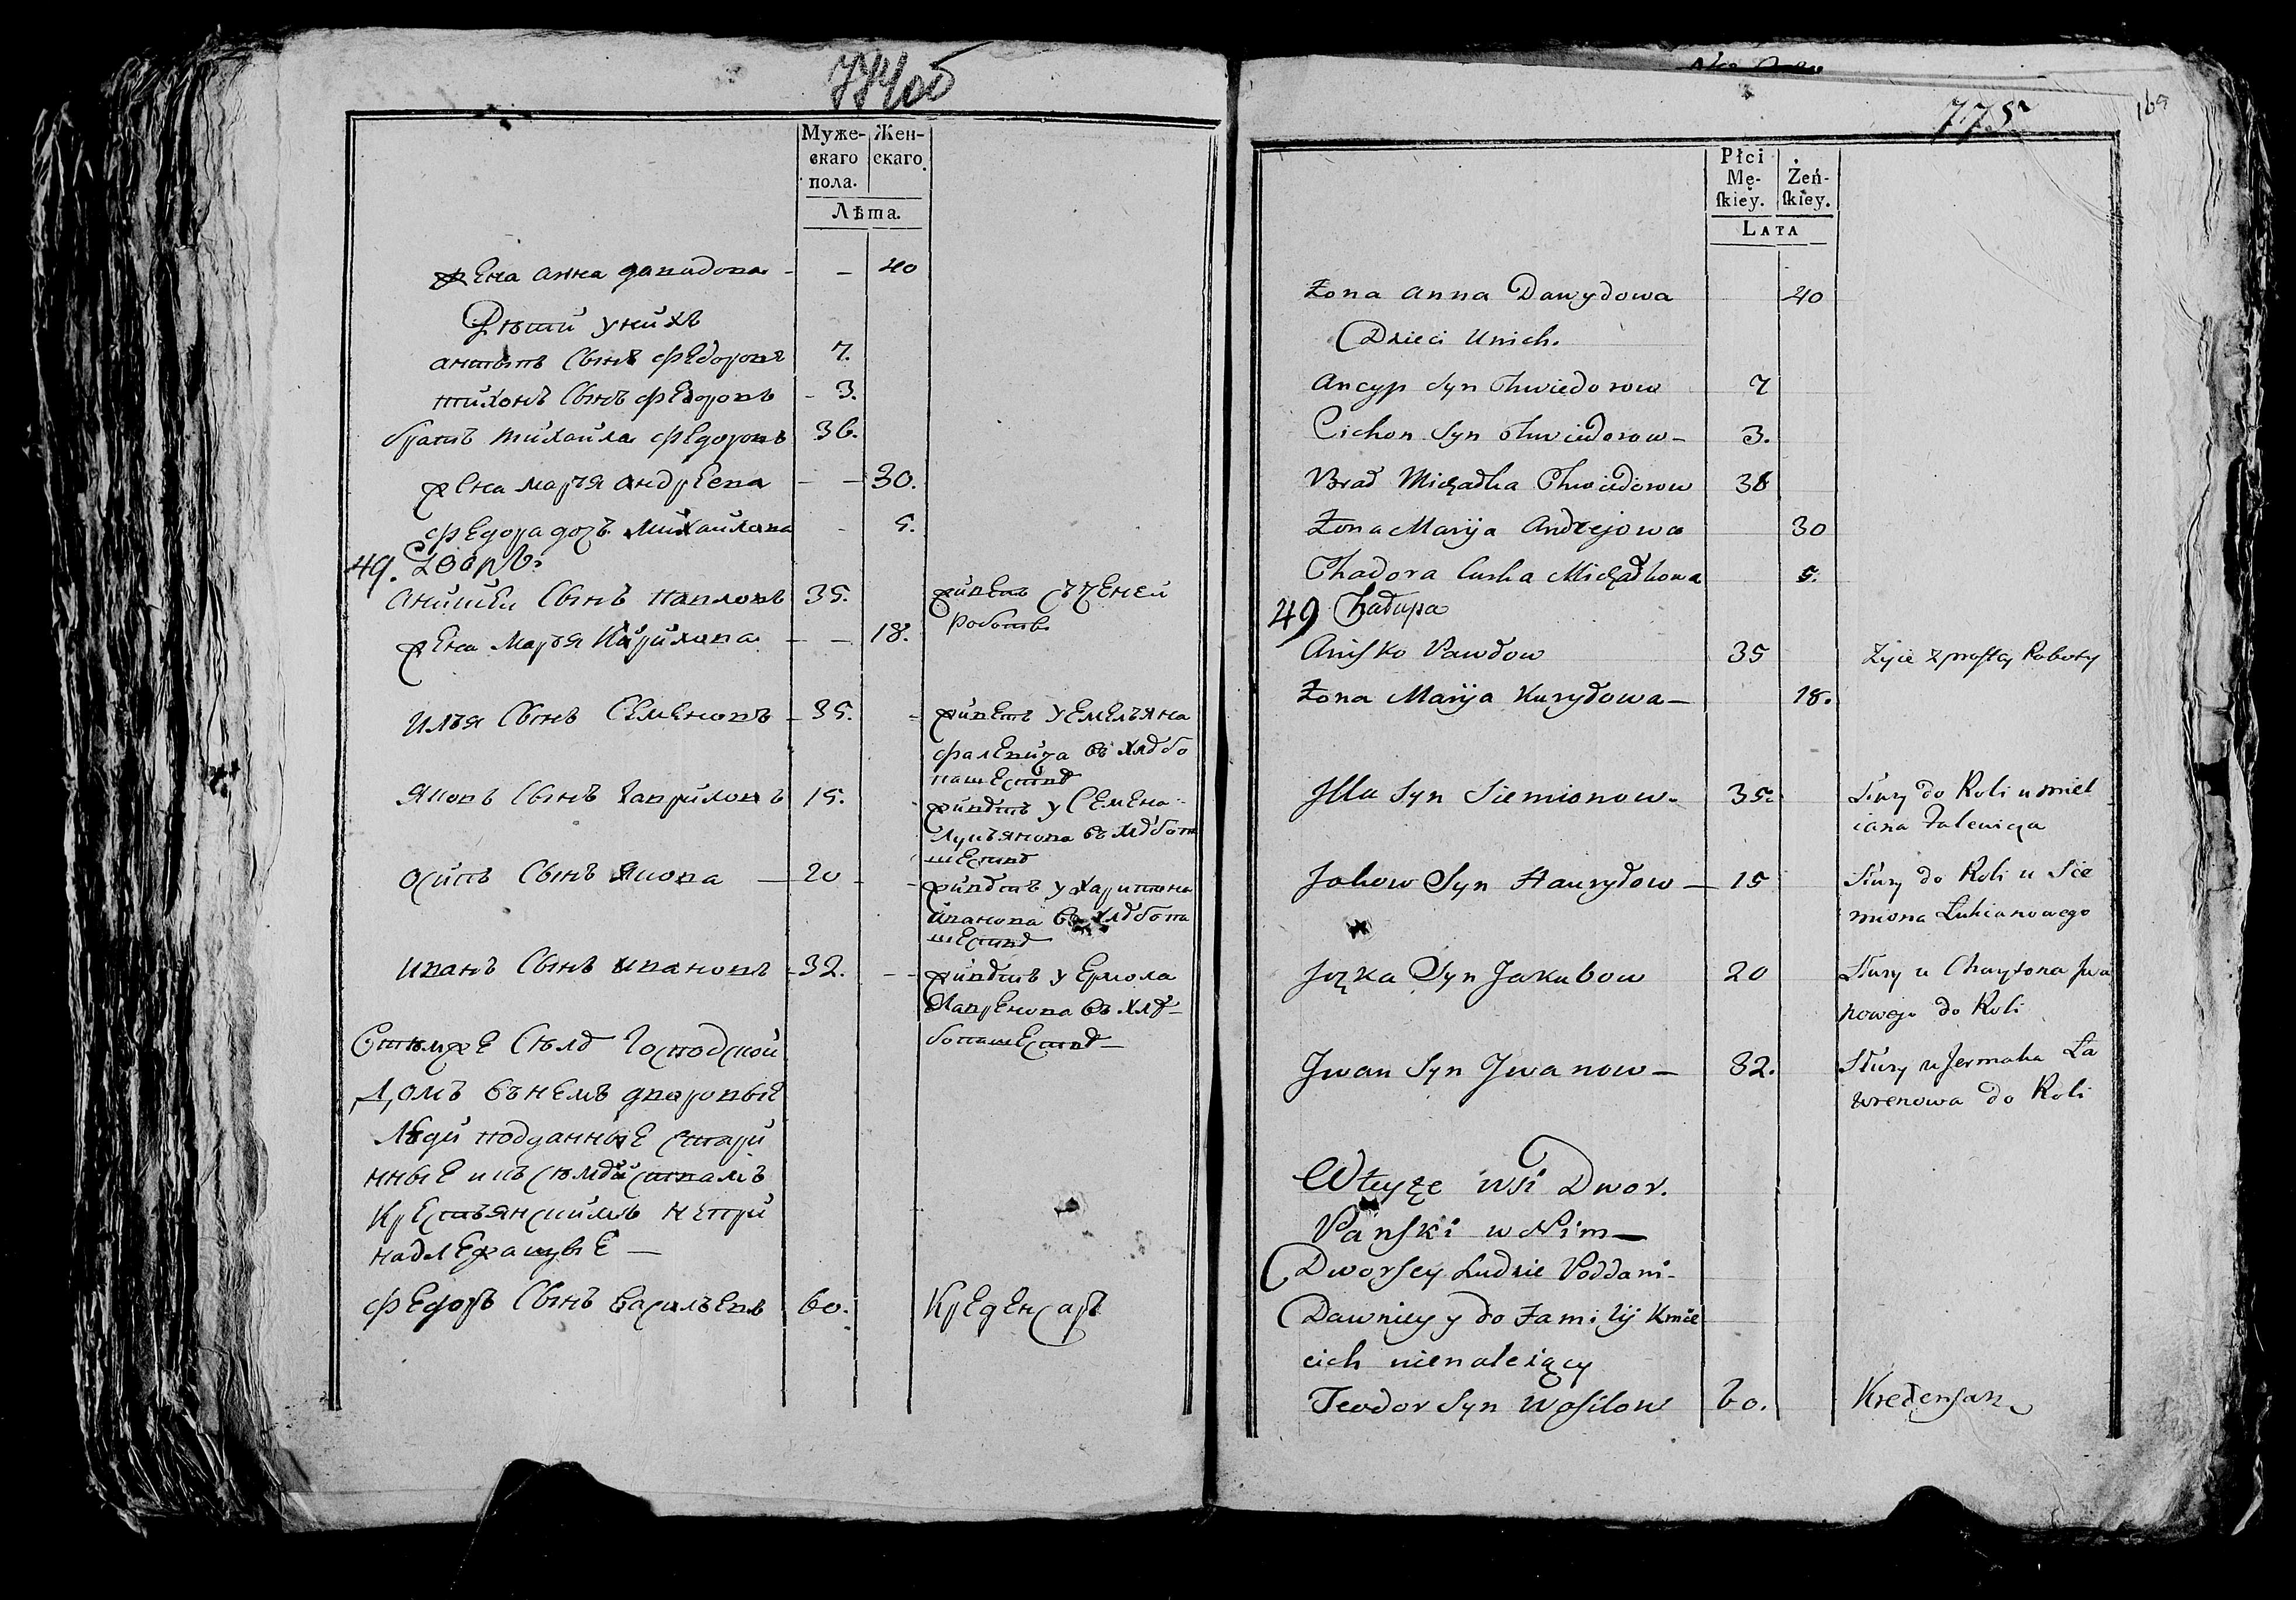 774об
Муже-
скаго
пола.
Жен-
скаго.
Лѣта.
жена анна давидова - - 40
Дѣти у нихъ
антыпъ сынъ федоровъ 7.
тихонъ сынъ федоровъ - 3.
братъ михаила федоровъ 36.
жена марья андреева - - 30.
федора дочь михайлова - 5.
49. Дворъ
Анишка сынъ павловъ 35. живетъ
жена марья кирилова - - 18. работы
илья сынъ семеновъ - 35. - живетъ у емельяна
фалевича въ хлебо
пашестве
яковъ сынъ гавриловъ 15. живетъ у семена
лукьянова въ хлебопа
шестве
осипъ сынъ якова - 20 - живетъ у харитона
иванова въ хлебопа
шестве
иванъ сынъ ивановъ - 32. - - живетъ у ермола
лавренова въ хле-
бопашестве
Втомже селе господской
домъ внемъ дворовые
люди подданные стари
нные и къ
крестьянскимъ непри
надлежащие -
федоръ сынъ васильевъ 60. креденсаръ
775
169
Płci
Mę-
ſkiey.
Żeń-
ſkiey.
LATA
Żona Anna Dawydowa 40
Dzieci Unich.
Ancyp Syn Chwiedorow 7
Cichon Syn Chwiedorow - 3.
Brad Michałka Chwiedorow 38
Żona Maryja Andrejowa 30
Chadora Curka Michałkowa 5.
49 Chałupa
Anisko Pawłow 35 Żyie z prostey Roboty
Żona Maryja Kuryłowa - 18.
Illa Syn Siemionow - 35. Służy do Roli u miel
iana Falewicza
Jakow Syn Hawryłow - 15 Służy do Roli u Sie
miona Łukianowego
Jozka Syn Jakubow 20 Służy u Charytona Iwa
nowego do Roli
Iwan Syn Iwanow - 32. Służy u Jermaka Ła
wrenowa do Roli
W teyże wsi Dwor.
Panski w Nim -
Dworscy Ludzie Poddani -
Dawniey y do Familij Kmie
cich nienależący
Teodor Syn Wasilow 60. Kredensarz